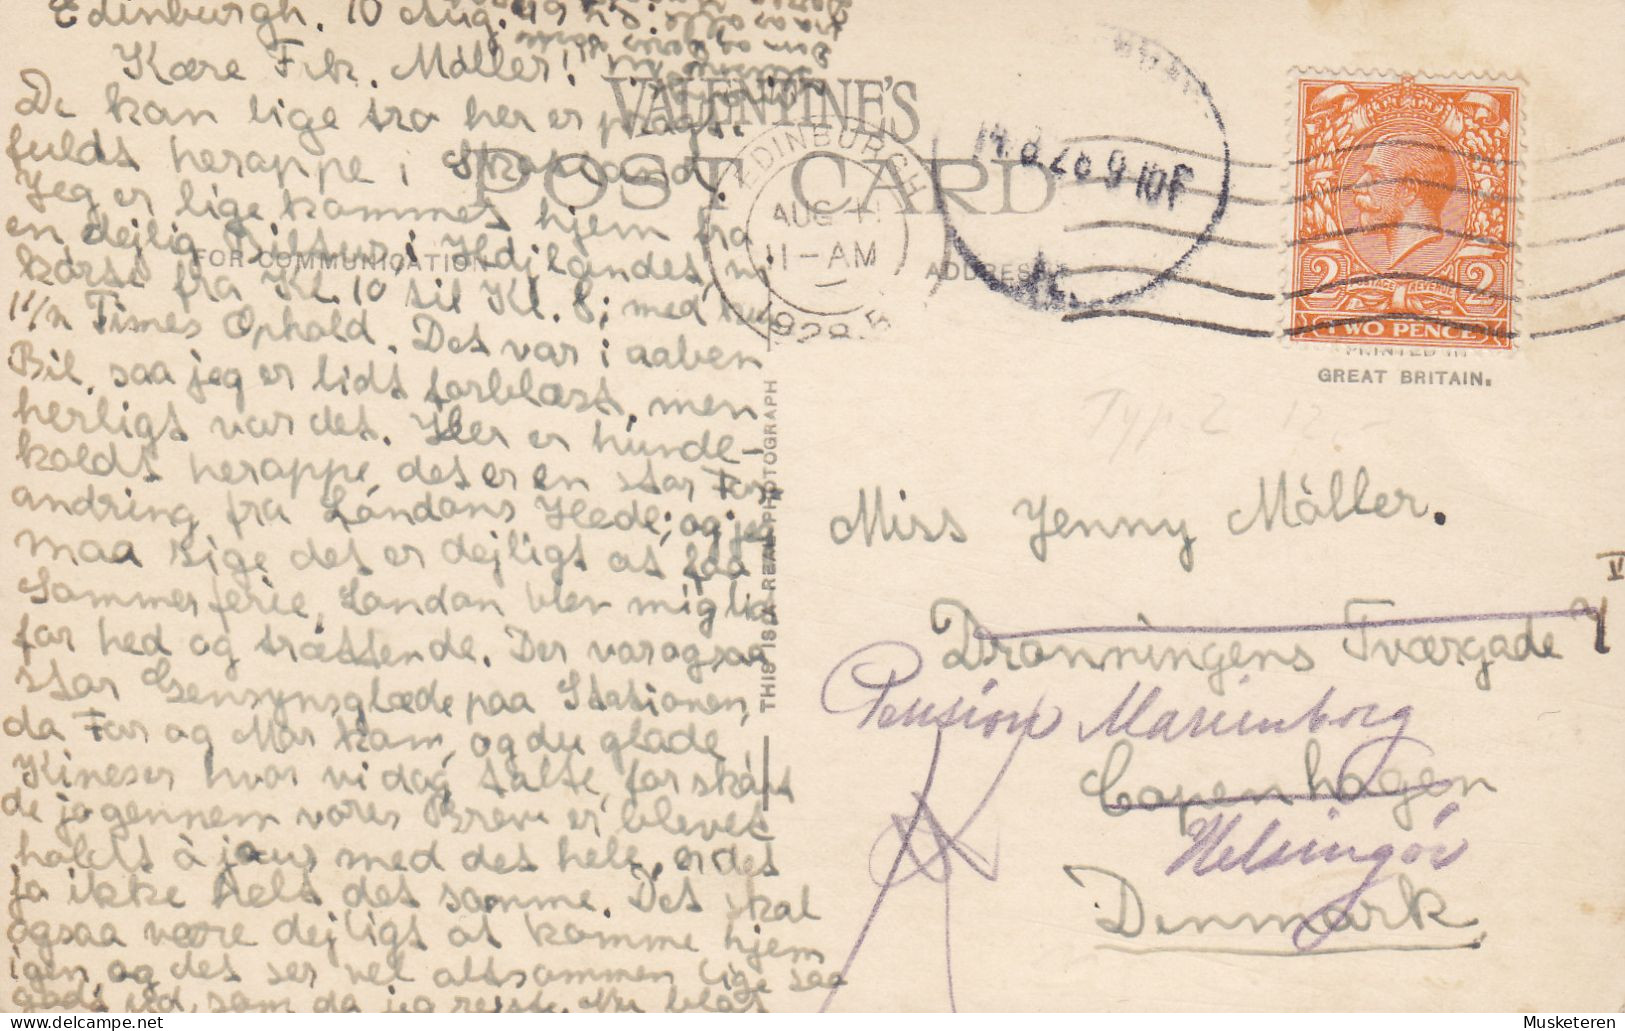 Edinburgh. 10 Aug. 1928
Kære Frk. Møller!
De kan tro her er pragt-
fuldt heroppe i Skotland.
Jeg er lige kommet hjem fra
en dejlig Biltur i Højlandet, vi
kørte fra Kl. 10 til Kl. 8; med
1 1/2 Times Ophold. Det var i aaben
Bil, saa jeg er lidt forblæst, men
herligt var det. Her er hunde-
koldt heroppe, det er en stor For-
andring fra Londons Hede; og jeg
maa sige det er dejligt at faa
Sommerferie, London blev mig lidt
for hed og trættende. Der var ogsaa
stor Gensynsglæde paa Stationen,
da Far og Mor kom, og du glade
Kineser hvor vi dog talte, for skønt
de jo gennem vores Breve er blevet
holdt à jour med det hele, er det
jo ikke helt det samme. Det skal
ogsaa være dejligt at komme hjem
igen og det ser vel altsammen lige saa
godt ud, som da jeg rejste. Nu blot
VALENTINE'S
POST CARD
FOR COMMUNICATION
ADDRESS
THIS IS A REAL PHOTOGRAPH
EDINBURGH
AUG 11
11-AM
1928
14.8.28 9 10F
POSTAGE REVENUE
2 2
TWO PENCE
PRINTED IN
GREAT BRITAIN.
Typ. 2 12.-
Miss Jenny Møller.
Dronningens Tværgade 7
V
Pension Marienborg
Copenhagen
Helsingör
Denmark
Musketeren on delcampe.net